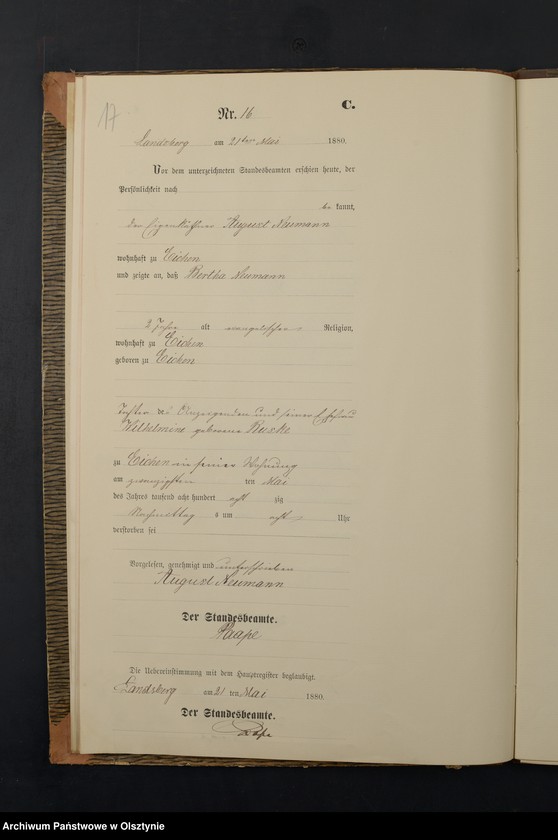 17
C.
Nr. 16
Landsberg am 21ten Mai 1880.
Vor dem unterzeichneten Standesbeamten erschien heute, der
Persönlichkeit nach
be kannt,
der Eigenkäthner August Neumann
wohnhaft zu Eichen
und zeigte an, daß Bertha Neumann
2 Jahre alt evangelischer Religion,
wohnhaft zu Eichen
geboren zu Eichen
Tochter des Anzeigenden und seiner Ehefrau
Wilhelmine geborene
zu Eichen in seiner Wohnung
am zwanzigsten ten Mai
des Jahres tausend acht hundert acht zig
Nachmittag s um acht Uhr
verstorben sei
Vorgelesen, genehmigt und unterschrieben
August Neumann
Der Standesbeamte.
Raape
Die Uebereinstimmung mit dem Hauptregister beglaubigt.
Landsberg am 21 ten Mai 1880.
Der Standesbeamte.
Archiwum Państwowe w Olsztynie